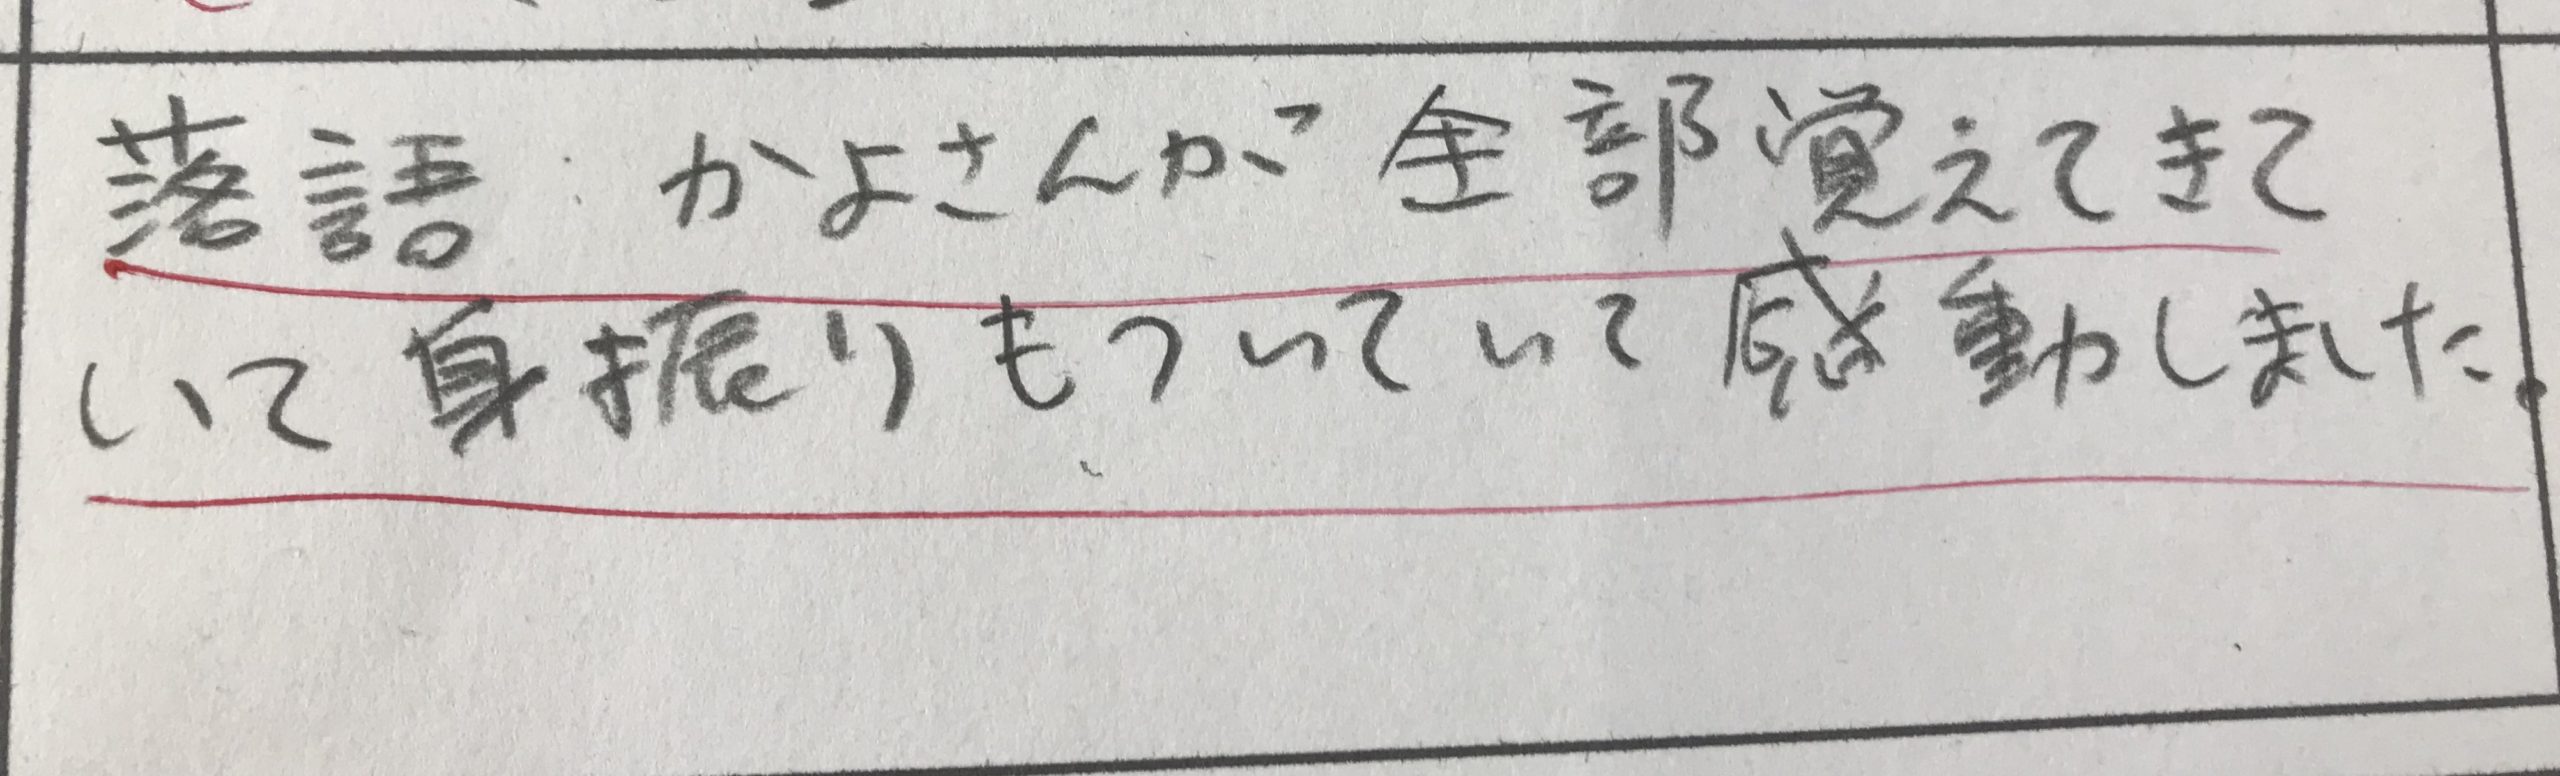 落語:かよさんが全部覚えてきて
いて身振りもついていて感動しました。